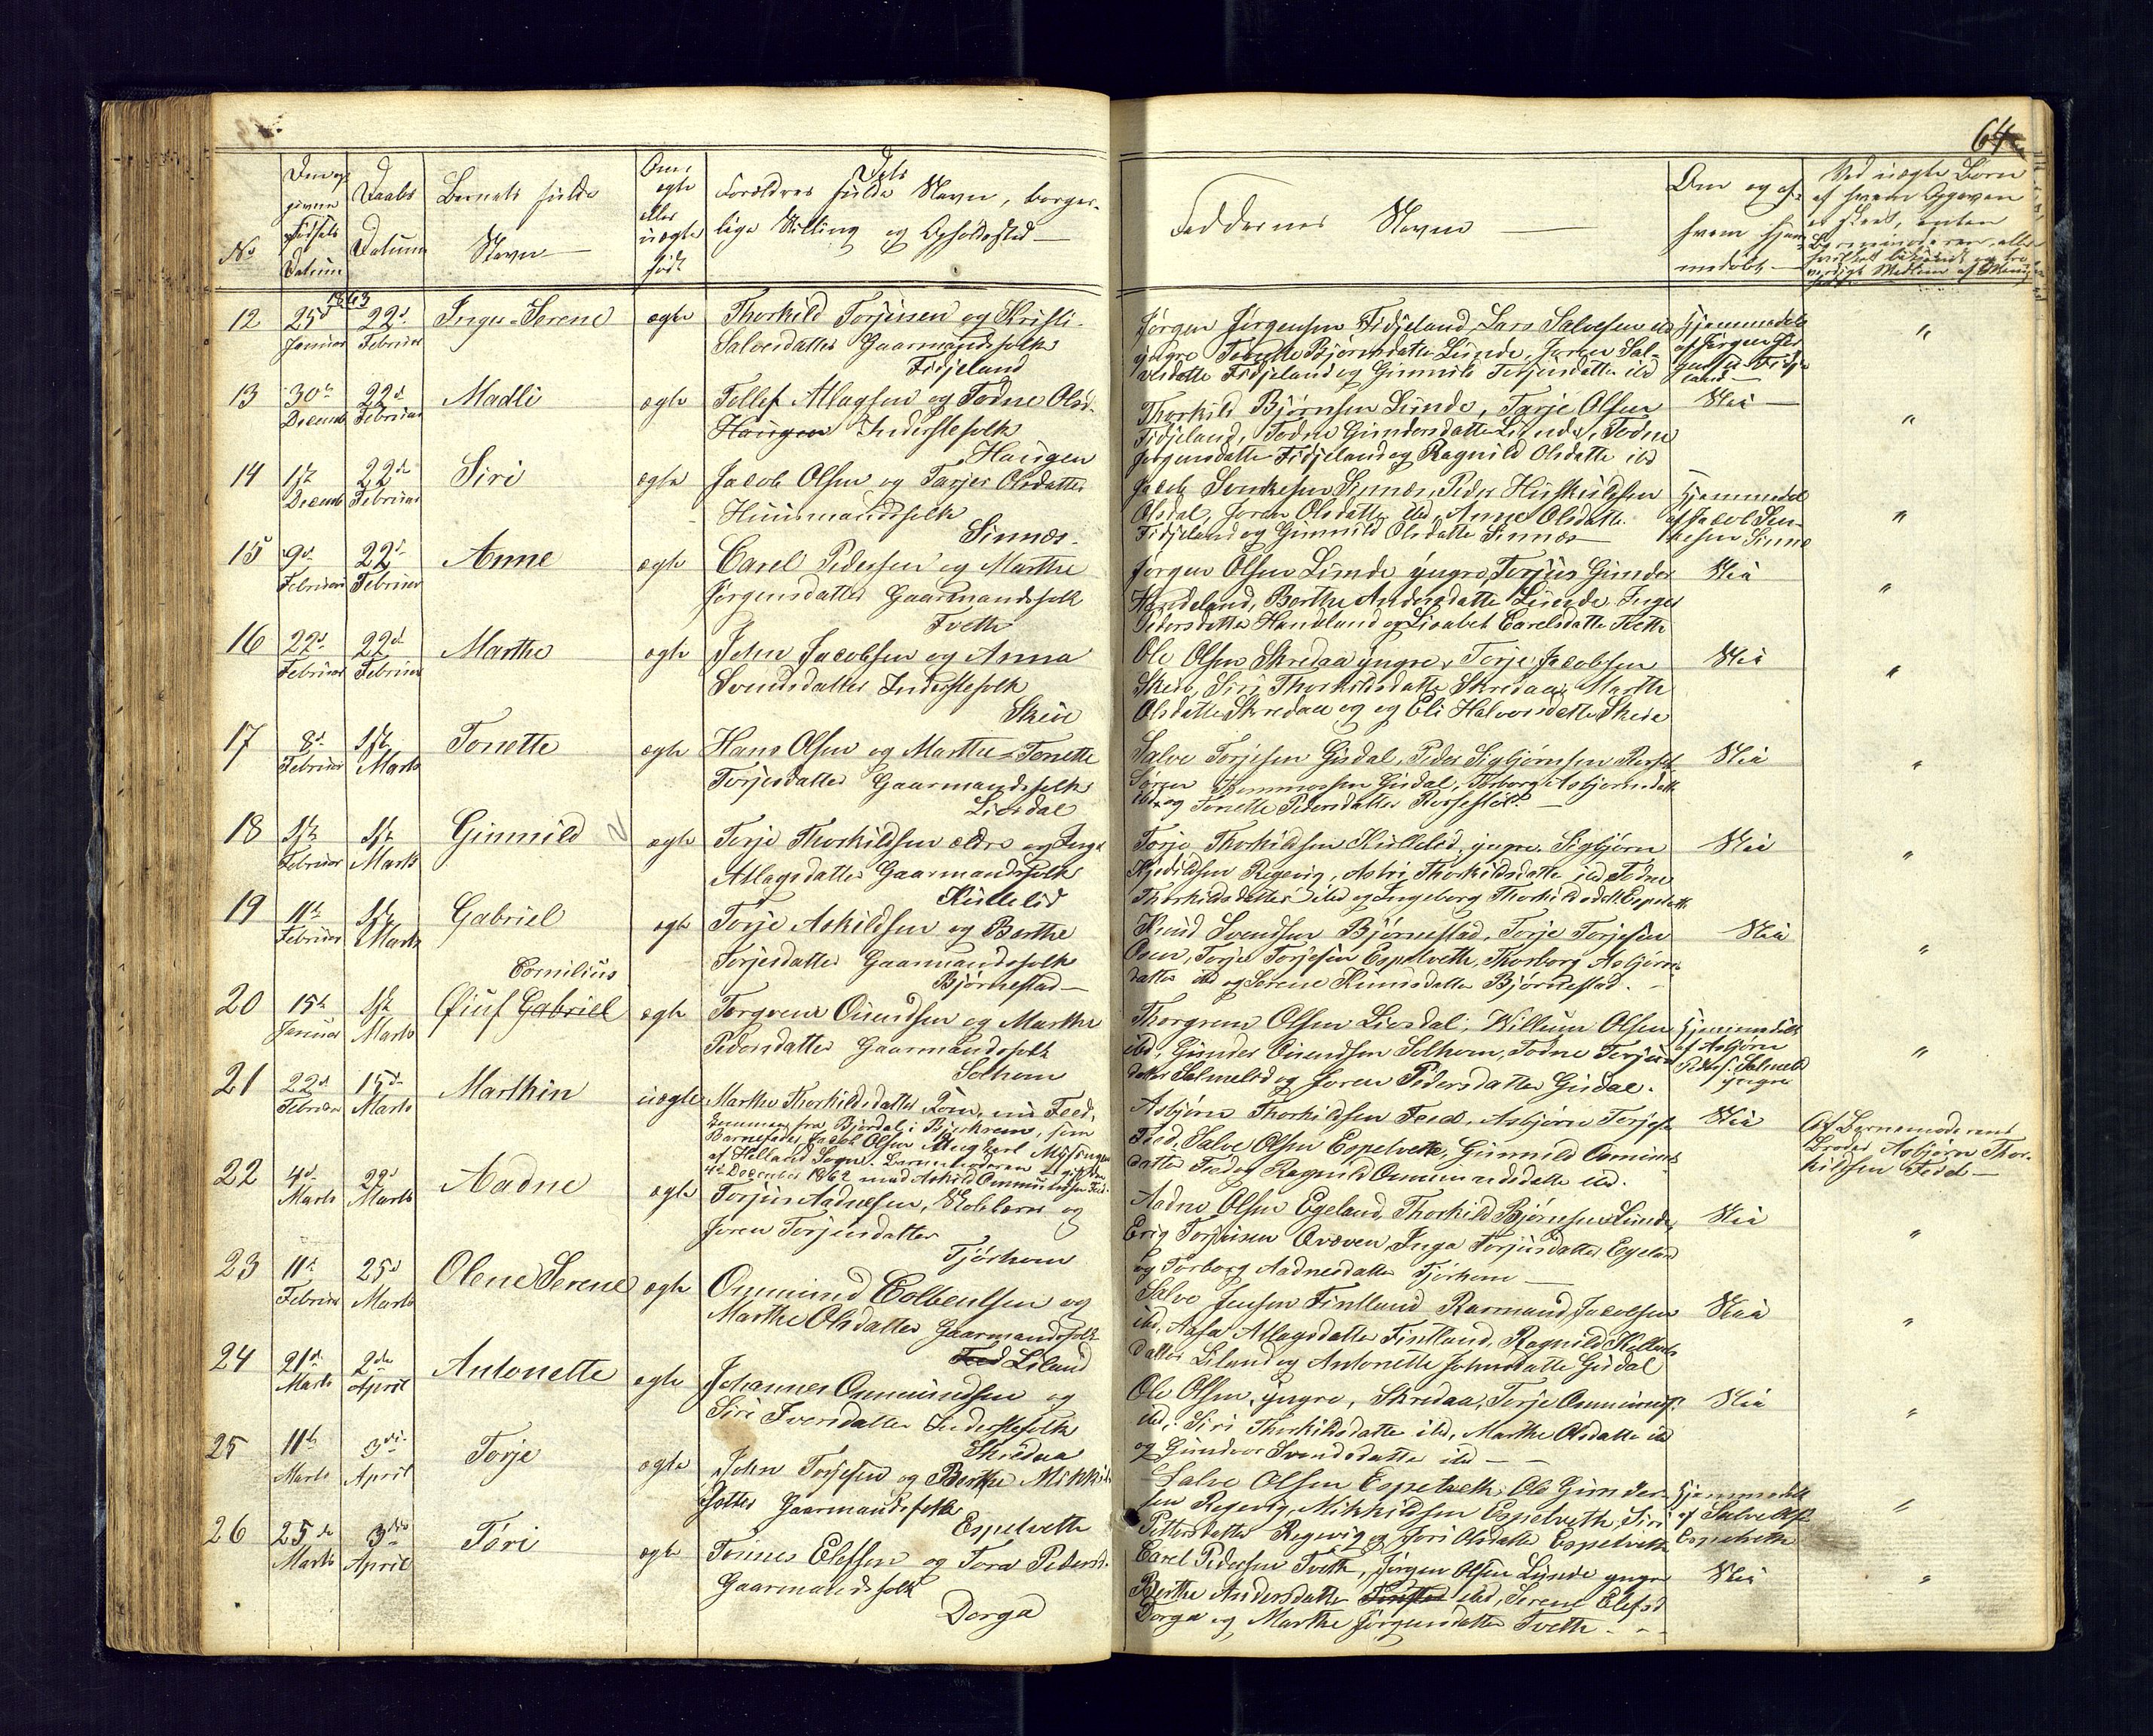 64
No
Den opgivne Fødsels Datum
Daabs Datum
Barnets fulde Navn
Om ægte eller uægte født
Dets Forældres fulde Navn, borgerlige Stilling og Opholdssted
Faddernes Navne
Om og af hvem hjemmedøbt
Ved uægte Børn af hvem Opgaven er skeet, enten
1863
12 25de Januar 22de Februar Inger Serene ægte Thorkild Torjusen og Thrisli
Salvesdatter Gaarmandsfolk
Fidjeland
Jørgen Jørgensen Fidjeland, Lars Salvesen ibd
yngre Tonette Bjørnsdatter Lunde, Joren Sal-
vesdatter Fidjeland og Gunnild Torjusdatter ibd
Hjemmedøbt
af Jørgen Jør
gensen Fidje
land
"
13 30te Decemb 22de Februar Madli ægte Tollef Atlagsen og Todne Olsd.
Haugen Inderstefolk
Haugen
Thorkild Bjørnsen Lunde, Tarje Olsen
Fidjeland, Todne Gundersdatter Lunde, Todne
Jørgensdatter Fidjeland og Ragnild Olsdatter ibd
Nei
"
14 1ste Decemb 22de Februar Siri ægte Jacob Olsen og Tarjer Olsdatter
Huusmandsfolk
Sinnæs
Jacob Sunkesen Sinnæs, Peder Huskuldsen
Olsdal, Joren Olsdatter ibd, Anne Olsdatter
Fidjeland og Gunnild Olsdatter Sinnæs
Hjemmedøbt
af Jacob Sun-
kesen Sinnæs
"
15 9de Februar 22de Februar Anne ægte Carel Pedersen og Marthe
Jørgensdatter Gaarmandsfolk
Tveth
Jørgen Olsen Lunde yngre, Torjus Gunders
Handeland, Berthe Andersdatter Lunde, Inger
Pedersdatter Handeland og Lisabet Carelsdatter Tveth
Nei
"
16 22de Februar 22de Februar Marthe ægte John Jacobsen og Anna
Svendsdatter Inderstefolk
Skeie
Ole Olsen Skredaa yngre, Torje Jacobsen
Skeie, Siri Thorkildsdatter Skredaa, Marthe
Olsdatter Skredaa og og Eli Halvorsdatter Skeie
Nei
"
17 8de Februar 1ste Marts Tonette ægte Hans Olsen og Marthe-Tonette
Torjesdatter Gaarmandsfolk
Liosdal
Salve Torjesen Gusdal, Peder Sigbjørnsen
Søren Tommassen Gusdal, Torborg Asbjørnsdatter
ibd og Tonette Pedersdatter
Nei
"
18 1ste Februar 1ste Marts Gunnild ægte Torje Thorkildsen ældre og Inger
Atlagsdatter Gaarmandsfolk
Kullelid
Torje Thorkildsen Kullelid yngre, Sigbjørn
Kjetilsen Regevig, Astri Thorkildsdatter ibd, Todne
Thorkildsdatter ibd og Ingeborg Thorkildsdatter Espetveth
Nei
"
19 11te Februar 1ste Marts Gabriel ægte Torje Askildsen og Berthe
Torjesdatter Gaarmandsfolk
Bjørnestad
Knud Svendsen Bjørnestad, Torje Torjesen
Osen, Torje Torjesen Espetveth, Thorborg Asbjørns-
datter ibd og Serene Knudsdatter Bjørnestad.
Nei
"
20 15de Januar 1ste Marts Cornilius
Øiuf Gabriel ægte Torgrem Omundsen og Marthe
Pedersdatter Gaarmandsfolk
Solhom
Thorgrem Olsen Liosdal, Willum Olsen
ibd, Gunder Omundsen Solhom, Todne Torjus
datter Salmelid og Joren Pedersdatter Gusdal.
Hjemmedøbt
af Asbjørn
Peders. Salmelid
yngre
"
21 22de Februar 15de Marts Marthin uægte Marthe Thorkildsdatter Tørn, nu Feed,
kommen fra Bjordal i Bjerkrem, som
Barnefader, Jacob Olsen Ungkarl
af Helland Sogn. Barnemoderen gift den
December 1862 med Askild Ommundsen Feed.
Asbjørn Thorkildsen Feed, Asbjørn Torjes
Feed, Salve Olsen Espetveth, Gunnild Ommunds
datter Feed og Ragnild Ommundsdatter ibd.
Nei
Af Barnemoderens
Broder Asbjørn Thor-
kildsen Feed
22 4de Marts 22de Marts Aadne ægte Torjus Aadnesen, og
Joren Torjusdatter
Tjørhom
Aadne Olsen Egeland, Thorkild Bjørnsen Lunde,
Erig Torjusen Qvæven, Inga Torjusdatter Egeland
og Torborg Aadnesdatter Tjørhom
Nei
"
23 11te Februar 25de Marts Olene Serene ægte Ommund Colbentsen og
Marthe Olsdatter Gaarmandsfolk
Feed Liland
Salve Jensen Fintland, Rasmund Jacobsen
ibd, Aasa Atlagsdatter Fintland, Ragnild
datter Liland og Antonette Johnsdatter Gusdal
Nei
"
24 21de Marts 2den April Antonette ægte Johannes Ommundsen og
Siri Iversdatter Inderstefolk
Skredaa
Ole Olsen, yngre, Skredaa, Torje Ommunds.
ibd, Siri Thorkildsdatter ibd, Marthe Olsdatter ibd
og Gundvor Svendsdatter ibd
Nei
"
25 11te Marts 3die April Torje ægte John Torjesen og Berthe Mikkels
datter Gaarmandsfolk
Espetveth
Salve Olsen Espetveth, Ole Gunder-
sen Regevig, Mikkildsen Espetveth, Siri
Pettersdatter Regevig og Jori Olsdatter Espetveth
Hjemmedøbt
af Salve Ols.
Espetveth
"
26 25de Marts 3die April Tori ægte Tønnes Elefsen og Tora Pedersd.
Gaarmandsfolk
Dorga
Carel Pedersen Tveth, Jørgen Olsen Lunde yngre
Berthe Andersdatter ibd, Serene Elefsd
Dorga og Marthe Jørgensdatter Tveth
Nei
"